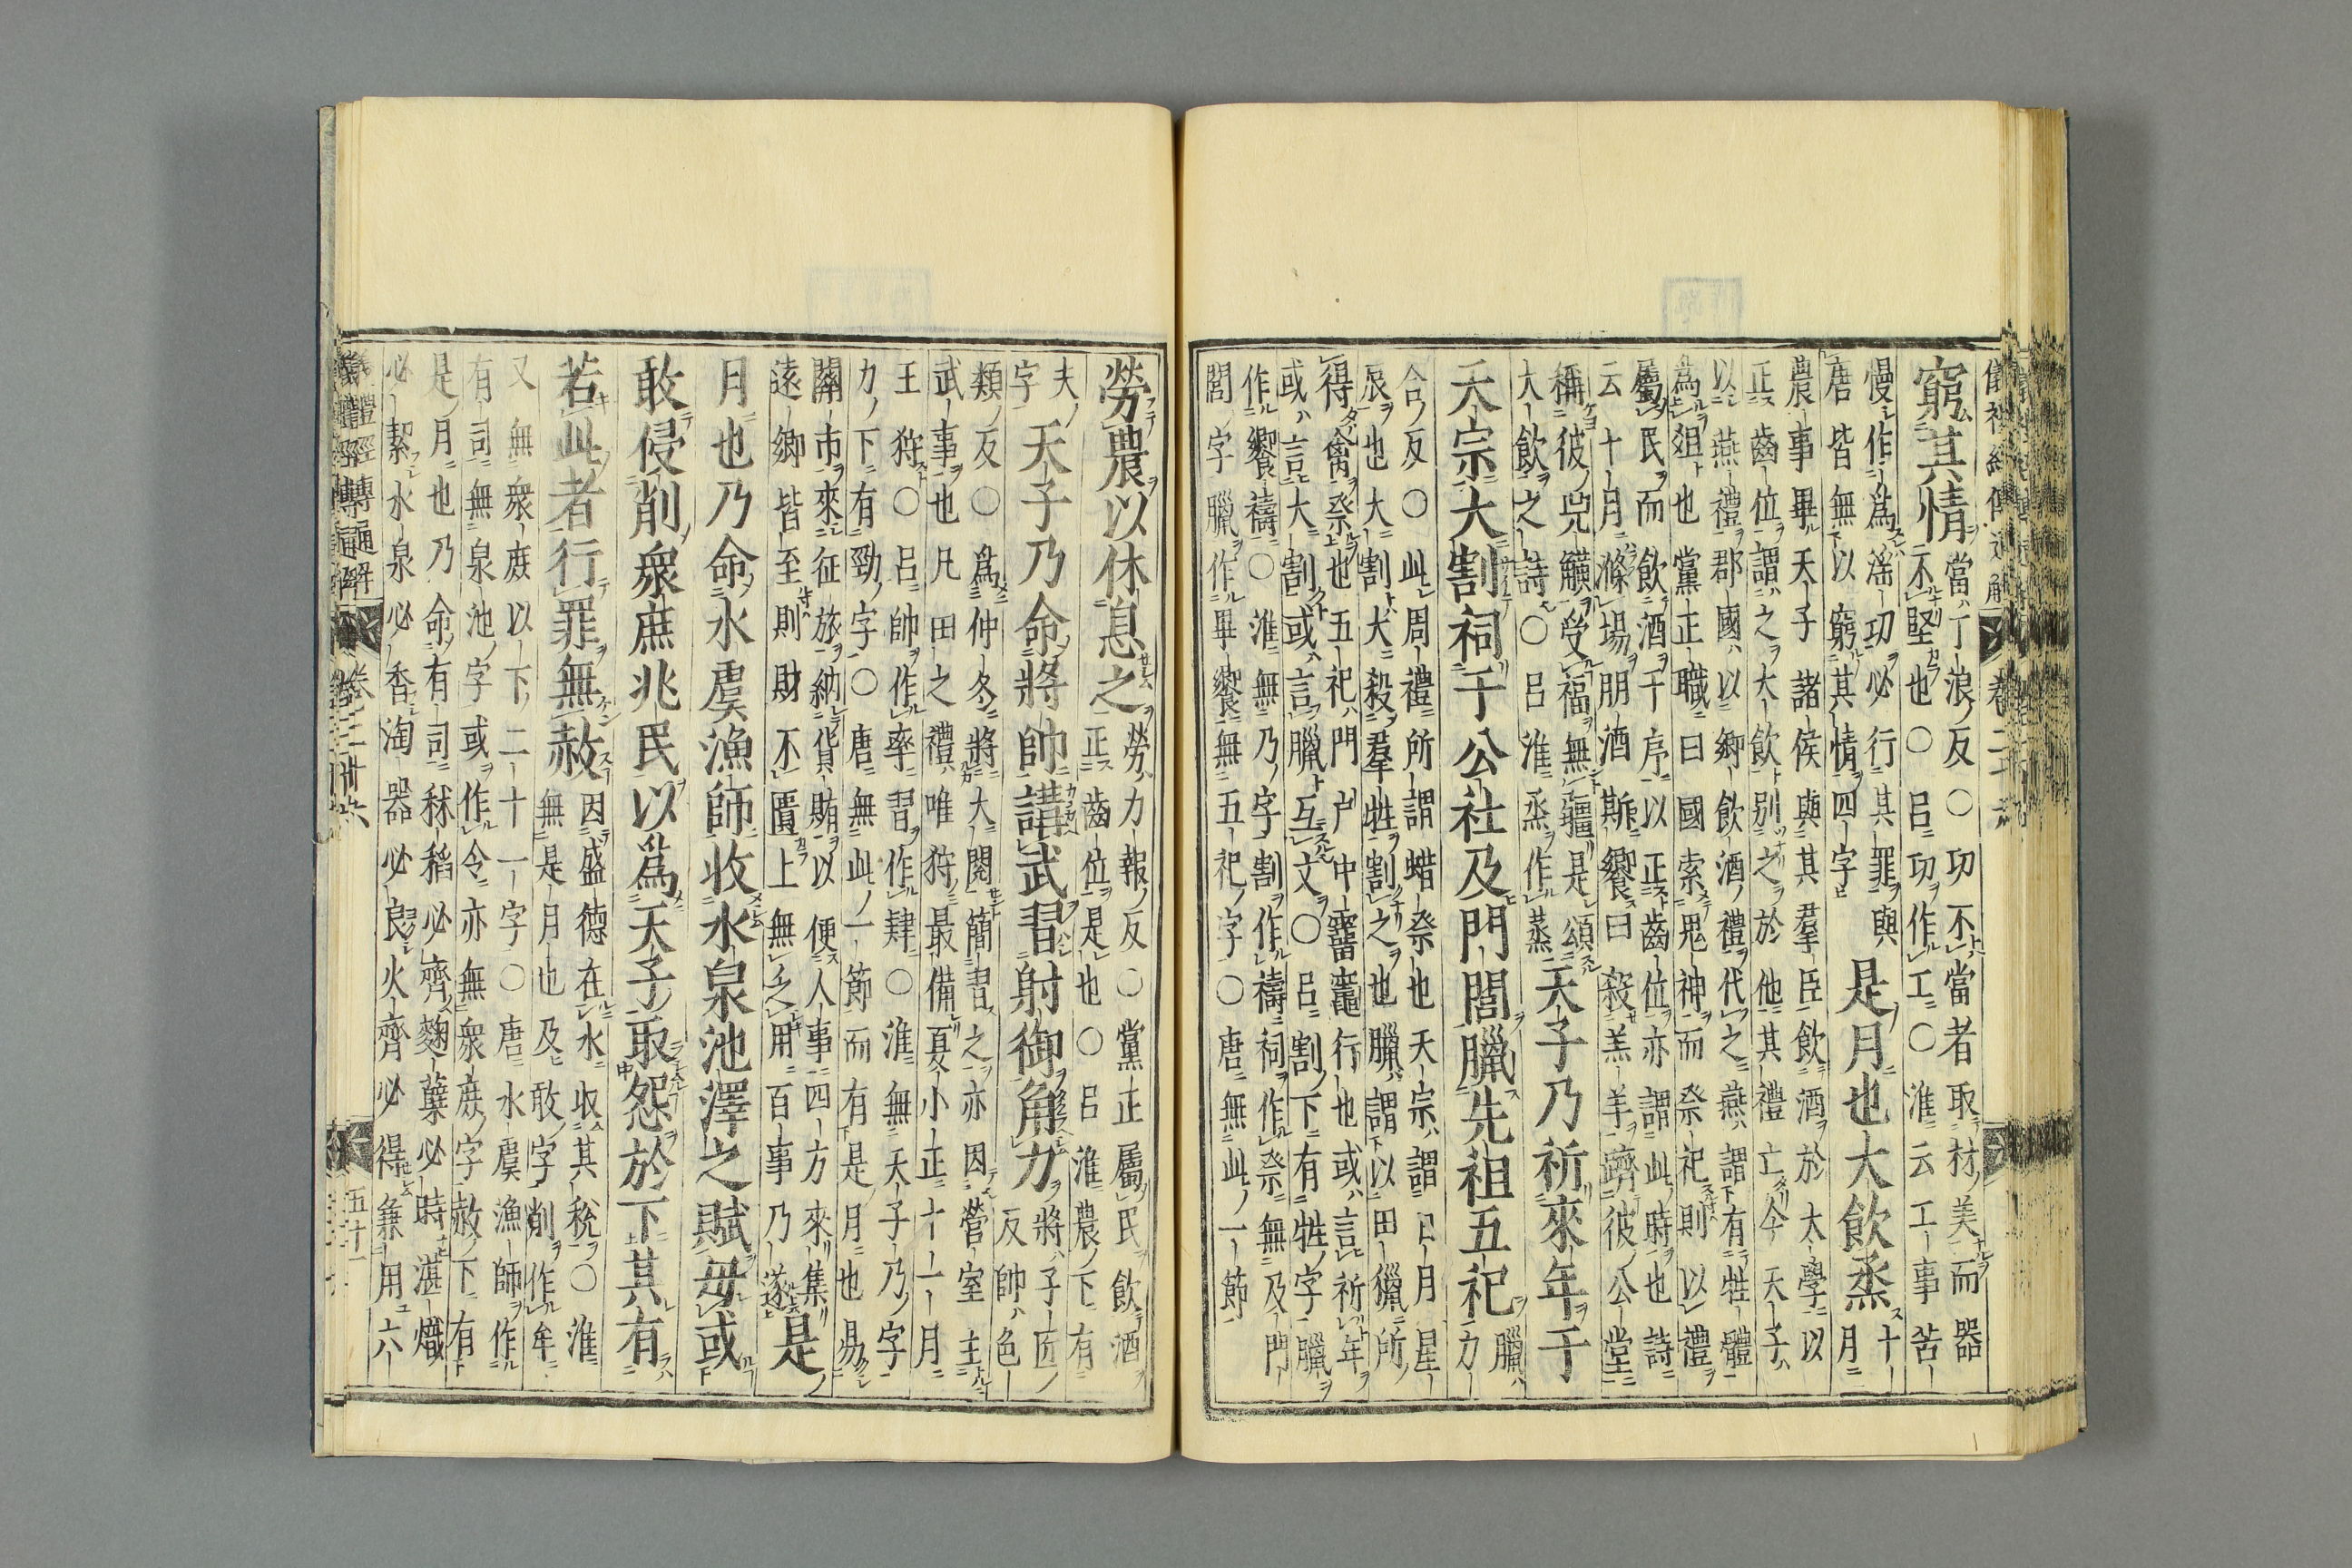 儀禮經傳通解 卷二十六
窮其情
當丁浪反○功不當者取材美而器
不堅也○呂功作工○淮云工事苦
慢作爲淫功必行其罪與
唐皆無以窮其情四字
是月也大飲烝
十
月
農事畢天子諸侯與其羣臣飲酒於太學以
正齒位謂之大飲別之於他其禮亡今天子
以燕禮郡國以鄉飲酒禮代之燕謂有牲體
爲俎也黨正職曰國索鬼神而祭祀則以禮
屬民而飲酒于序以正齒位亦謂此時也詩
云十月滌場朋酒斯饗曰殺羔羊躋彼公堂
稱彼兕觥受福無疆是頌
大飲之詩○呂淮烝作蒸
天子乃祈來年于
天宗大割祠于公社及門閭臘先祖五祀
臘
力
合反○此周禮所謂蜡祭也天宗謂日月星
辰也大割大殺羣牲割之也臘謂以田獵所
得禽祭也五祀門戶中霤竈行也或言祈年
或言大割或言臘互文○呂割下有牲字臘
作饗禱○淮無乃字割作禱祠作祭無及門
閭字臘作畢饗無五祀字○唐無此一節
勞農以休息之
勞力報反○黨正屬民飲酒
正齒位是也○呂淮農下有
夫
字
天子乃命將帥講武習射御角力
將子匠
反帥色
類反○爲仲冬將大閱簡習之亦因營室主
武事也凡田之禮唯狩最備夏小正十一月
王狩○呂帥作率習作肄○淮無天子乃字
力下有勁字○唐無此一節而有是月也易
關市來征旅納貨賄以便人事四方來集
遠鄉皆至則財不匱上無乏用百事乃遂
是
月也乃命水虞漁師收水泉池澤之賦毋或
敢侵削衆庶兆民以爲天子取怨於下其有
若此者行罪無赦
因盛德在水收其稅○淮
無是月也及敢字削作牟
又無衆庶以下二十一字○唐水虞漁師作
有司無泉池字或作令亦無衆庶字赦下有
是月也乃命有司秫稻必齊麴糵必時湛熾
必絜水泉必香淘器必良火齊必得兼用六
儀禮經傳通解 卷二十六 五十一